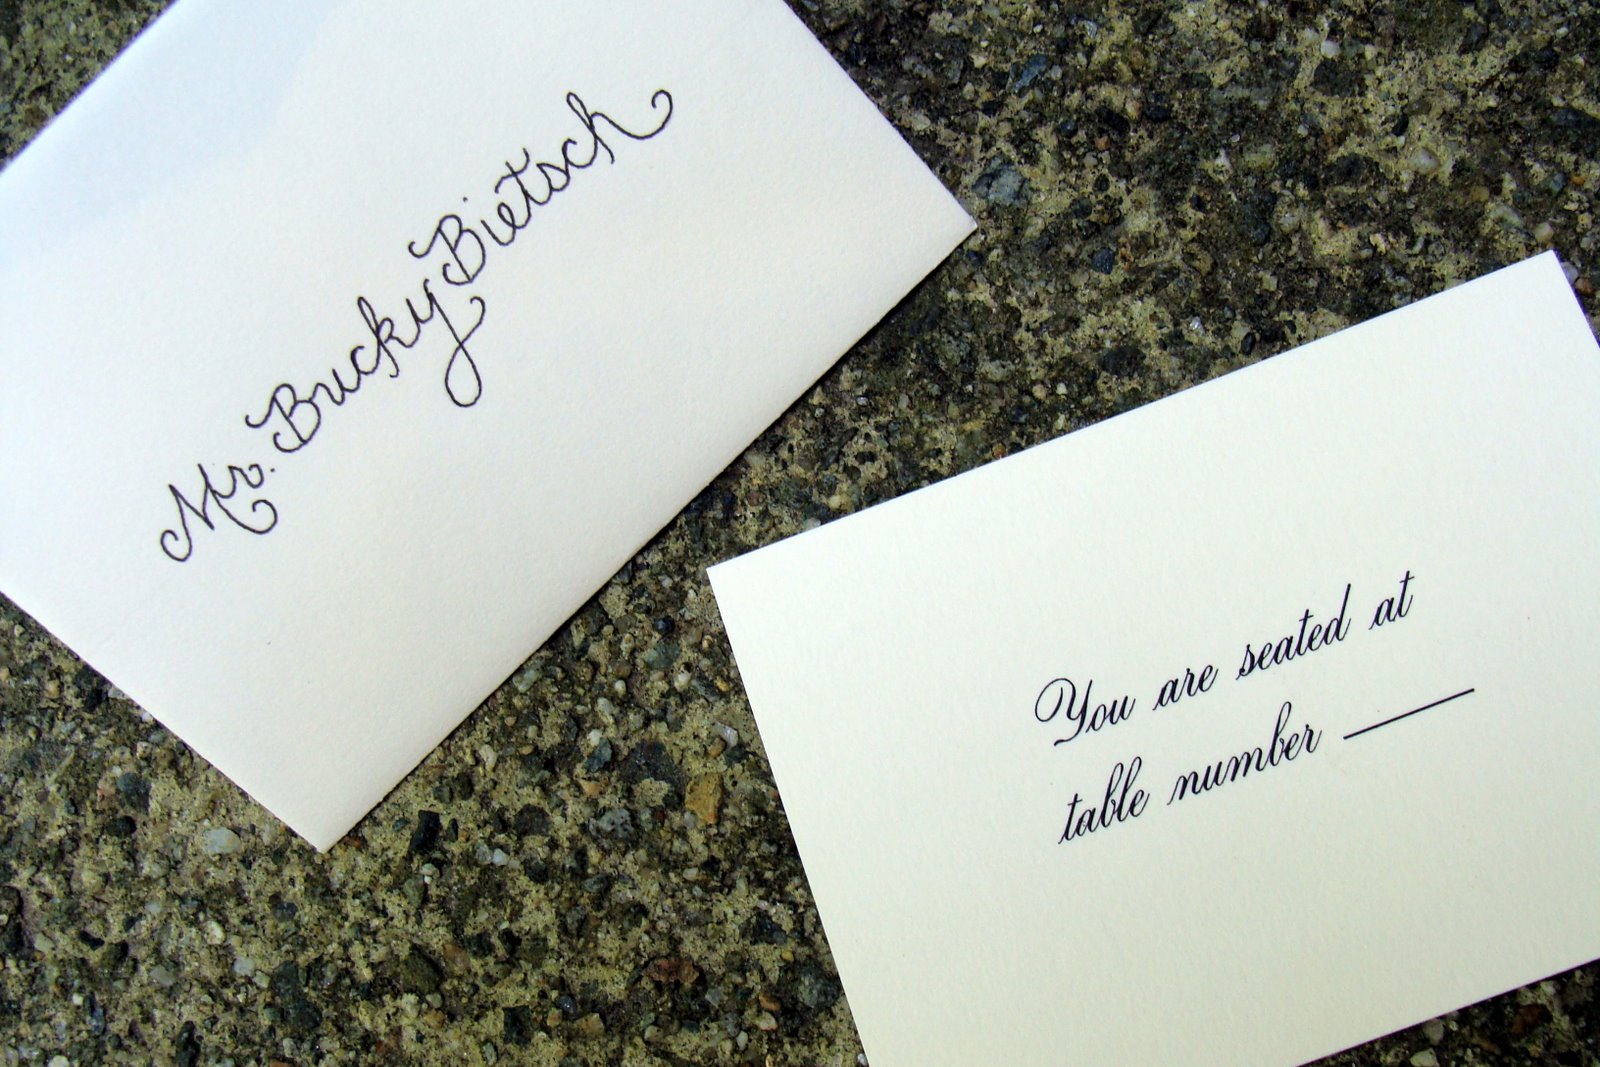 Mr. Bucky Bietsch
You are seated at
table number ____